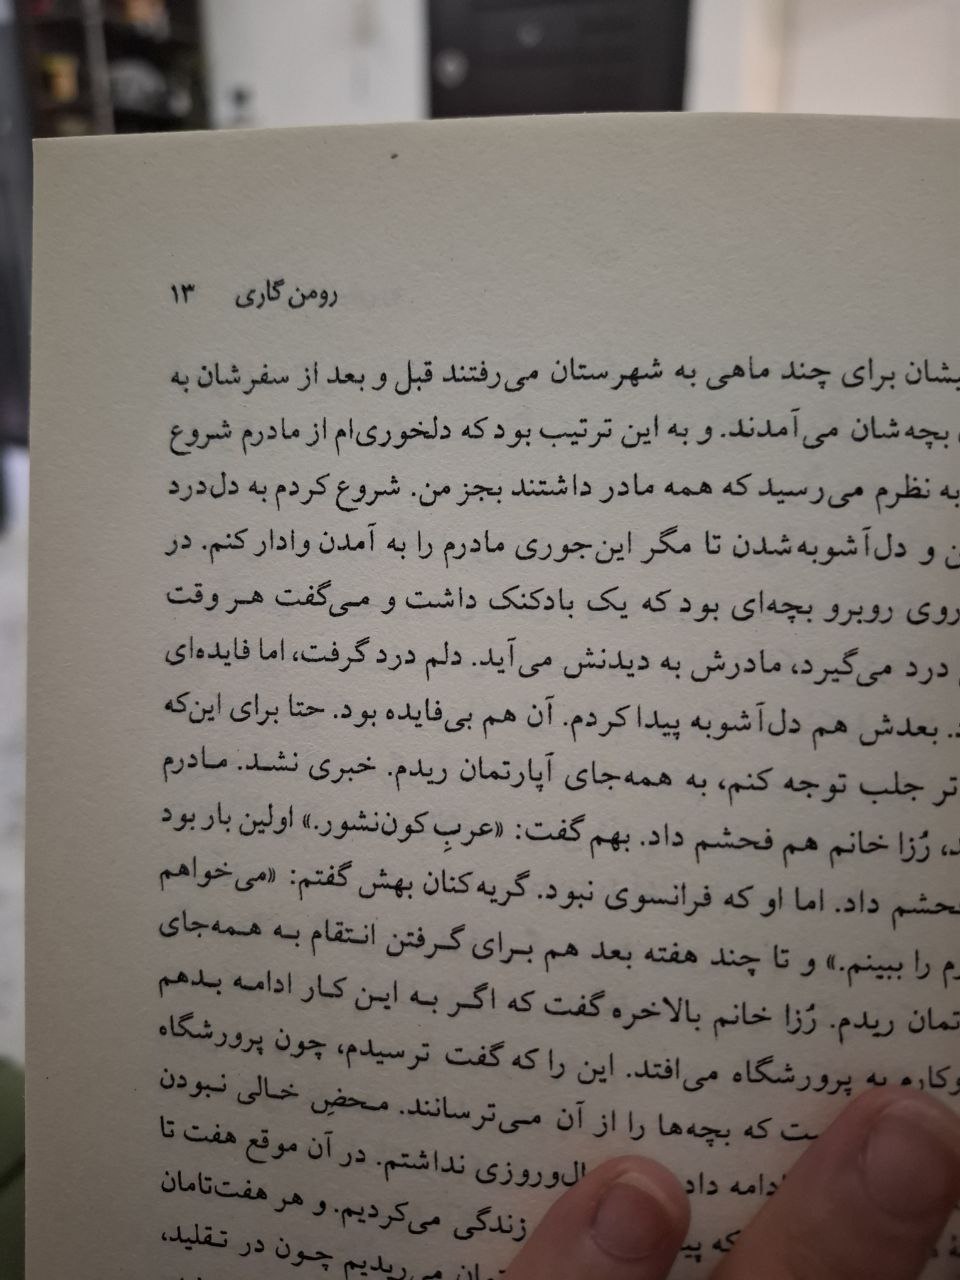 رومن گاری ۱۳
برای چند ماهی به شهرستان می‌رفتند قبل و بعد از سفرشان به
بچه‌شان می‌آمدند. و به این ترتیب بود که دلخوری‌ام از مادرم شروع
به نظرم می‌رسید که همه مادر داشتند بجز من. شروع کردم به دل‌درد
و دل‌آشوبه‌شدن تا مگر این‌جوری مادرم را به آمدن وادار کنم. در
روی روبرو بچه‌ای بود که یک بادکنک داشت و می‌گفت هر وقت
درد می‌گیرد، مادرش به دیدنش می‌آید. دلم درد گرفت، اما فایده‌ای
بعدش هم دل‌آشوبه پیدا کردم. آن هم بی‌فایده بود. حتا برای این‌که
تر جلب توجه کنم، به همه‌جای آپارتمان ریدم. خبری نشد. مادرم
رُزا خانم هم فحشم داد. بهم گفت: «عربِ کون‌نشور.» اولین بار بود
فحشم داد. اما او که فرانسوی نبود. گریه‌کنان بهش گفتم: «می‌خواهم
را ببینم.» و تا چند هفته بعد هم برای گرفتن انتقام به همه‌جای
ریدم. رُزا خانم بالاخره گفت که اگر به این کار ادامه بدهم
به پرورشگاه می‌افتد. این را که گفت ترسیدم، چون پرورشگاه
که بچه‌ها را از آن می‌ترسانند. محضِ خالی نبودن
داد نداشتم. در آن موقع هفت تا
که زندگی می‌کردیم. و هر هفت‌تامان
می‌ریدیم چون در تقلید،